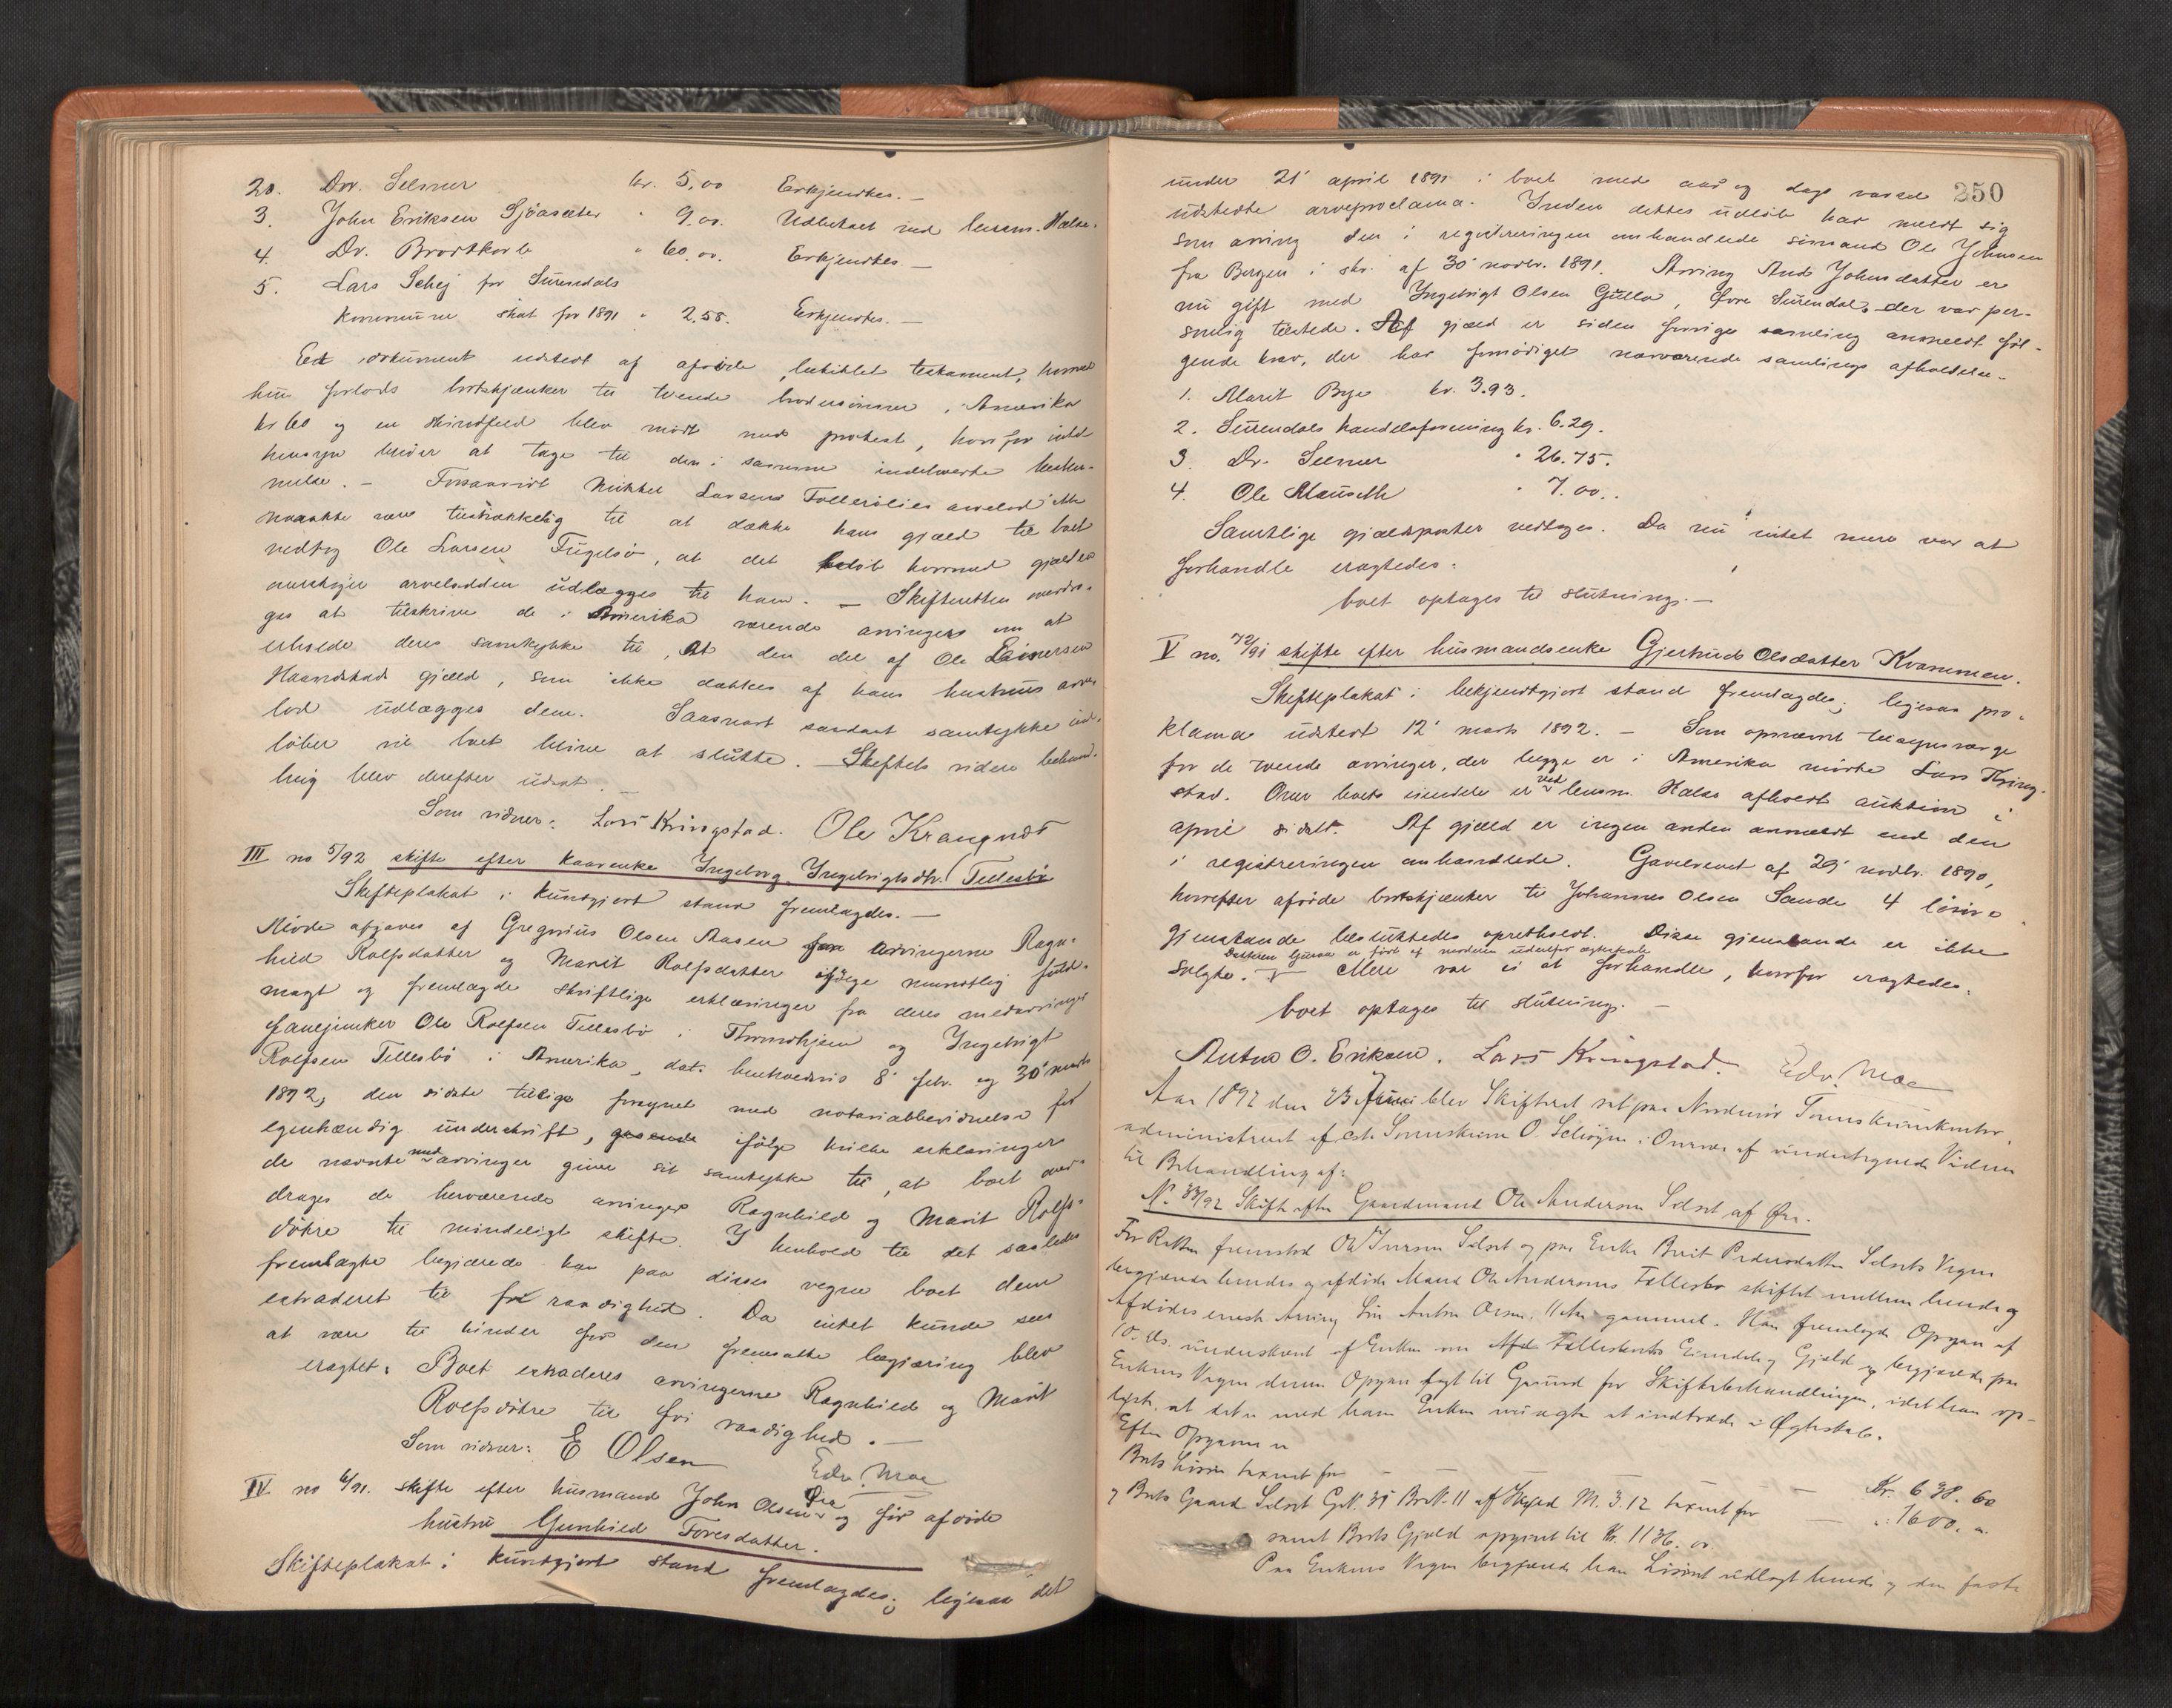 20. Dr. Selmer kr. 5,00 Erkjendtes. –
3. John Eriksen Sjøasæter " 9,00. Udbetalt ved lensm. Halse.
4. Dr. Brodtkorb " 60,00. Erkjendtes. –
5. Lars Schej for Surendals
kommune skat for 1891 " 2,58. Erkjendtes. –
Et dokument udstedt af afdøde, betitlet testament, hvorved
hun forlods bortskjænker til tvende brodersønner i Amerika
kr 60 og en skindfeld blev mødt med protest, hvorfor intet
hensyn bliver at tage til den i samme indeholdte bestem-
melse. – Forsaavidt Mikkel Larsens Follesøliens arvelod ikke
maatte være tilstrækkelig til at dække hans gjæld til boet
vedtog Ole Larsen Fugelsø, at det beløb hvormed gjælden
overstiger arvelodden udlægges til ham. – Skifteretten overdra-
ges at tilskrive de i Amerika værende arvinger om at
erholde deres samtykke til, at den del af Ole Einersen
Haandstad gjæld, som ikke dækkes af hans hustrus arve
lod udlægges dem. Saasnart saadant samtykke ind-
løber vil boet blive at slutte. – Skiftets videre behand-
ling blev derefter udsat. –
Som vidner: Lars Kringstad. Ole Kranqndt
III no 5/92 skifte efter kaarenke Ingeborg Ingebrigtsdtr. Tellesbø
Skifteplakat i kundgjort stand fremlagdes. –
Møde afgaves af Gregorius Olsen Aasen for arvingerne Ragn-
hild Rolfsdatter og Marit Rolfsdatter ifølge mundtlig fuld-
magt og fremlagde skriftlige erklæringer fra deres medarvinger
fanejunker Ole Rolfsen Tellesbø i Throndhjem og Ingebrigt
Rolfsen Tellesbø i Amerika, dat. henholdsvis 8' febr. og 30' marts
1892, den sidste tillige forsynet med notarialbevidnelse for
egenhændig underskrift, ifølge hvilke erklæringer
de nævnte med arvinger give sit samtykke til, at boet over-
drages de herværende arvinger Ragnhild og Marit Rolfs-
døtre til mindeligt skifte. I henhold til det saaledes
fremlagte begjærede han paa disses vegne boet dem
extraderet til fri raadighed. Da intet kunde sees
at være til hinder for den fremsatte begjæring blev
eragtet: Boet extraderes arvingerne Ragnhild og Marit
Rolfsdøtre til fri raadighed. –
Som vidner: E Olsen Edv. Moe
IV no 6/91. skifte efter husmand John Olsen Øra og før afdøde
hustru Gunhild Toresdatter.
Skifteplakat i kundgjort stand fremlagdes; ligesaa det
250
under 21' april 1891 i boet med aar og dags varsel
udstedte arveproclama. Inden dettes udløb har meldt sig
som arving den i registreringen omhandlede sømand Ole Johnsen
fra Bergen i skr. af 30' novbr. 1891. Arving And Johnsdatter er
nu gift med Ingebrigt Olsen Gulla, Øvre Surendal, der var per-
sonlig tilstede. Af gjæld er siden forrige samling anmeldt føl-
gende krav, der har fornødiget nærværende samlings afholdelse –
1. Marit Bye kr. 3.93.
2. Surendals handelsforening kr. 6.29.
3. Dr. Selmer " 26.75.
4. Ole Mauseth " 7.00.
Samtlige gjældsposter vedtoges. Da nu intet mere var at
forhandle eragtedes:
boet optages til slutning. –
V no. 72/91 skifte efter husmandsenke Gjertrud Olsdatter Kvammen.
Skifteplakat i bekjendtgjort stand fremlagdes; ligesaa pro-
klama udstedt 12' marts 1892. – Som opnævnt tilsynsværge
for de tvende arvinger, der begge er i Amerika mødte Lars Kring-
stad. Over boets eiendele er ved lensm. Halse afholdt auktion i
april sidstl. Af gjæld er ingen anden anmeldt end den
i registreringen omhandlede. Gavebrevet af 29' novbr. 1890,
hvorefter afdøde bortskjænker til Johannes Olsen Sande 4 løsøre
gjenstande besluttedes opretholdt. Disse gjenstande er ikke
er født af moderen udenfor ægteskab
solgte. – Mere var ei at forhandle, hvorfor eragtedes:
boet optages til slutning. –
Anton O. Eriksen. Lars Kringstad. Edv. Moe
Aar 1892 den 23 Juni blev Skifteret sat paa Nordmør Sorenskriverkontor,
administreret af cst. Sorenskriver O. Schøyen i Overvær af undertegnede Vidner
til Behandling af:
No. 33/92 Skifte efter Gaardmand Ole Andersen Selset af Øre.
For Retten fremstod Ole Iversen Selset og paa Enke Berit Pedersdatter Selsets Vegne
begjærede hendes og afdøde Mand Ole Andersens Fællesbo skiftet mellem hende og
Afdødes eneste Arving Søn Anton Olsen, 11 Aar gammel. Han fremlagde Opgave af
10. ds. underskrevet af Enken om Fællesboets Eiendele og Gjæld og begjærede paa
Enkens Vegne denne Opgave lagt til Grund for Skiftebehandlingen, idet han op-
lyste, at det er med ham Enken agter at indtræde i Ægteskab.
Efter Opgaven er
Boets Løsøre taxeret for – – – Kr. 638.60
og Boets Gaard Selset GrN. 35 BrN. 11 af Skyld M. 3.12 taxeret for – " 1600. "
samt Boets Gjæld opgivet til Kr. 1136.00.
Paa Enkens Vegne begjærede han Løsøret udlagt hende og den faste